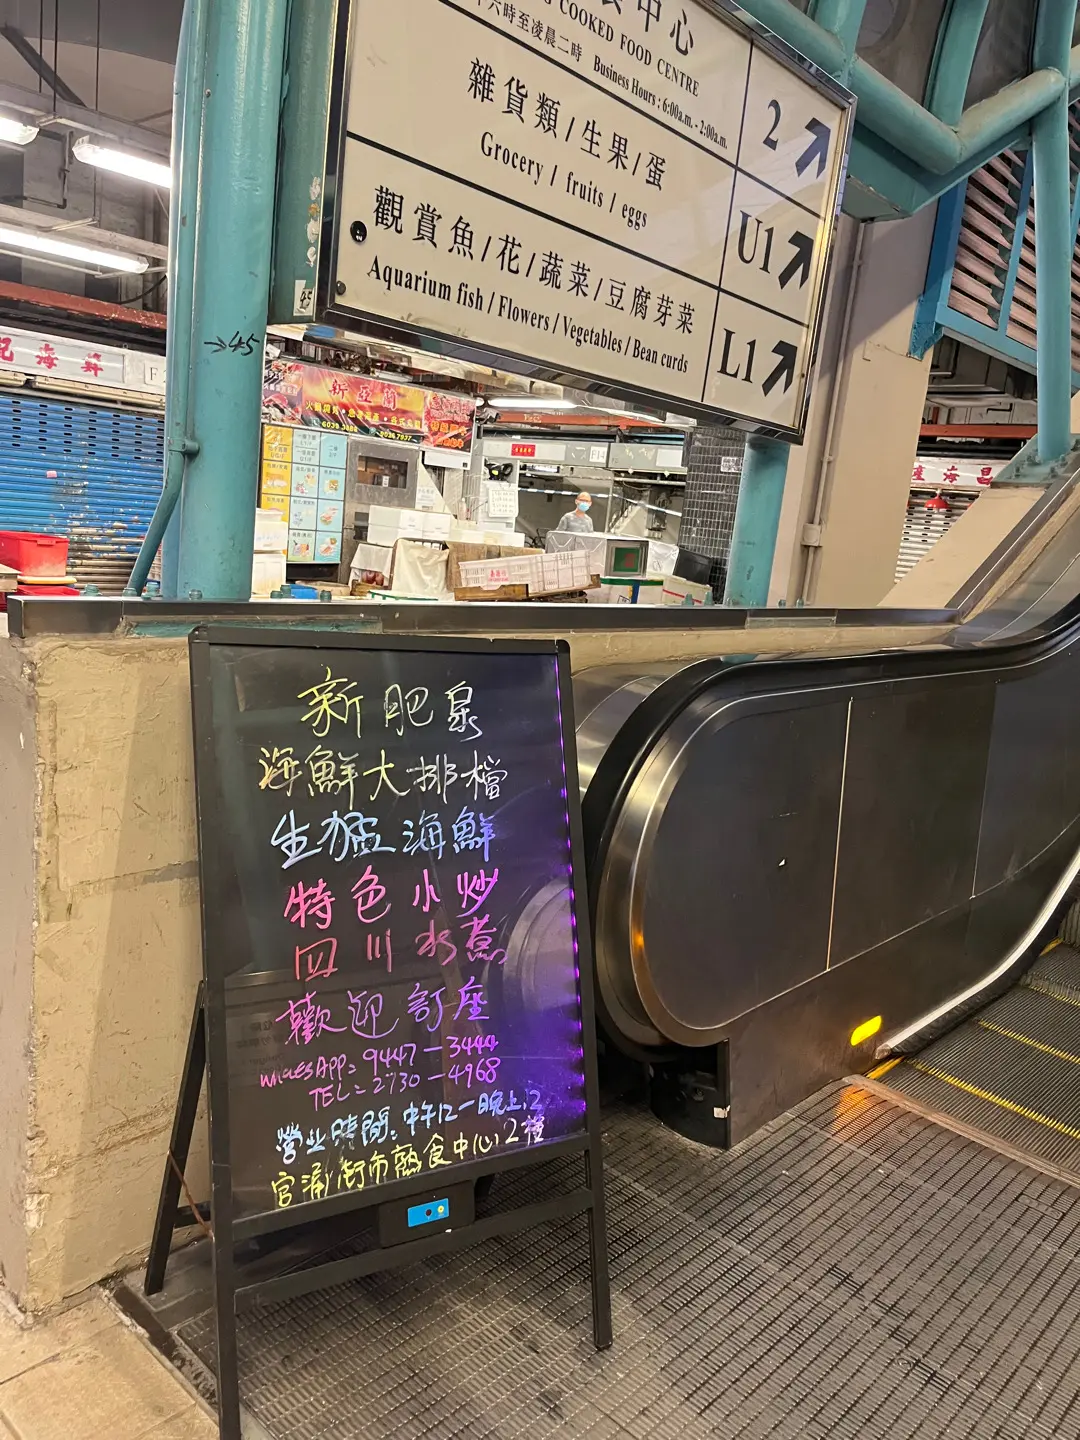 中心
COOKED FOOD CENTRE
六時至凌晨二時 Business Hours : 6:00a.m. - 2:00a.m.
2
雜貨類/生果/蛋
Grocery / fruits / eggs
U1
觀賞魚/花/蔬菜/豆腐芽菜
Aquarium fish / Flowers / Vegetables / Bean curds
L1
45
→45
新亞蘭
6039 3888
F14
新肥泉
海鮮大排檔
生猛海鮮
特色小炒
四川水煮
歡迎訂座
WhatsAPP: 9447-3444
TEL: 2730-4968
營业時間: 中午12-晚上12
官涌街市熟食中心2樓